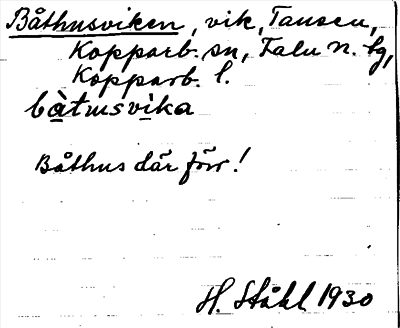 Båthusviken, vik, Tansen,
Kopparb. sn, Falu n. hg,
Kopparb. l.
bàtusvika
Båthus där förr!
H. Ståhl 1930